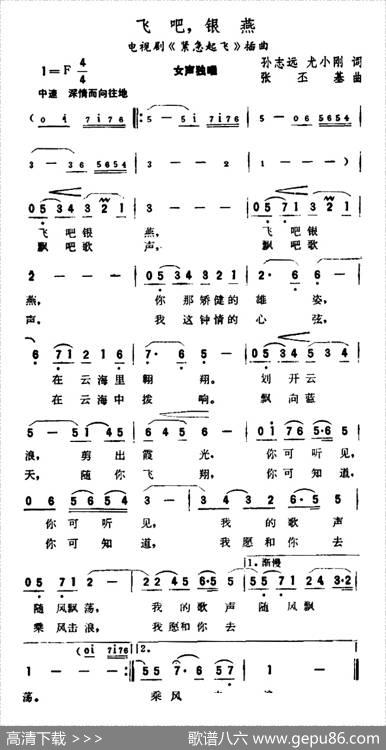 飞吧，银燕
电视剧《紧急起飞》插曲
1=F 4/4
女声独唱
孙志远 尤小刚 词
张丕基 曲
中速 深情而向往地
(0 i 7i76 |: 5 - 05 i7i76 | 5 - 06 5654 |
3 - 36 5654 | 3 - - - | 1 - - -) |
0 5 34 3 2 1 | 3 - - - | 0 5 71 3 2 1 |
飞吧银燕， 飞吧银
飘吧歌声， 飘吧歌
2 - - - | 05 43 32 1 | 2· 6 6 - |
燕， 你那矫健的雄姿，
声， 我这钟情的心弦，
6 71 2 1 6 | 7· 6 5 - | 0 1 34 5 3 |
在云海里翱翔。 划开云
在云海中拨响。 飘向蓝
5 - 51 45 | 6 456 5 - | 0 i 76 5·6 5 |
浪，剪出霞光。 你可听见，
天，随你飞翔， 你可知道，
0 6 56 54 | 3 - - - | 02 32 6·5 5 |
你可听见， 我的歌声
你可知道， 我愿和你去
05 71 2 - | 22 45 6·5 5 | 55 71 24 3·2 |
1.渐慢
随风飘荡， 我的歌声随风飘
乘风击浪， 我愿和你去
(0i 7i76
2.
1 - - - :| 55 7· 6 - |
荡。 乘风
高清下载 >>>
歌谱八六 www.gepu86.com